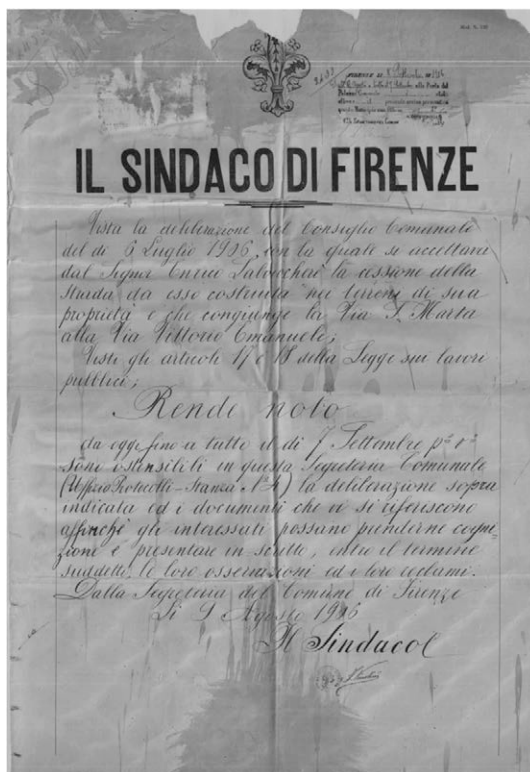 IL SINDACO DI FIRENZE
Vista la deliberazione del Consiglio Comunale
del dì 6 Luglio 1906, con la quale si accettava
dal Signor Enrico Labouchere la cessione della
Strada da esso costruita nei terreni di sua
proprietà e che congiunge la Via S. Marta
alla Via Vittorio Emanuele;
Visti gli articoli 17 e 18 della Legge sui lavori
pubblici;
Rende noto
da oggi fino a tutto il dì 7 Settembre p.º v.º
sono ostensibili in questa Segreteria Comunale
(Uffizio Protocolli - Stanza N.º 4) la deliberazione sopra
indicata ed i documenti che vi si riferiscono
affinchè gli interessati possano prenderne cogni-
zione e presentare in scritto, entro il termine
suddetto, le loro osservazioni ed i loro reclami.
Dalla Segreteria del Comune di Firenze
Li 9 Agosto 1906
Il Sindaco